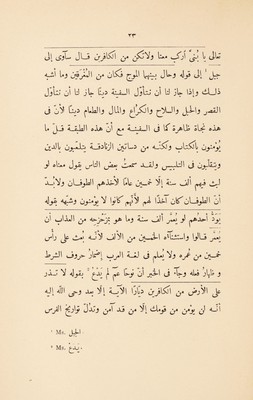 ٢٣
تعالى يا بُنَىَّ أركب معنا ولا تكن من الكافرين قال سآوى إلى
جبل ¹ إلى قوله وحال بينهما الموج فكان من المُغْرَقين وما أشبه
ذلك وإذا جاز لنا أن نتأوّل السفينة دينًا جاز لنا أن نتأوّل
القصر والخيل والسلاح والكراع والمال والطعام دينًا لأنّ فى
هذه نجاة ظاهرة كما فى السفينة مع أنّ هذه الطبقة قلّ ما
يؤمنون بالكتاب ولكنّه من دساتين الزنادقة يتلعّبون بالدين
ويتقلّبون فى التلبيس ولقد سمعتُ بعض الناس يقول معناه لو
لبث فيهم ألف سنة إلّا خمسين عامًا لأخذهم الطوفان ولا بدّ
أنّ الطوفان كان آخذًا لهم لأنّهم كانوا لا يؤمنون وشبّهه بقوله
يَوَدُّ أحدهم لو يُعمَّر ألف سنة وما هو بمُزَحْزِحِه من العذاب أن
يُعمَّر قالوا واستثناؤه الخمسين من الألف لأنّه بُعث على رأس
خمسين من عُمره ولا يُعلم فى لغة العرب إضمار حروف الشرط
و فعله وجآء فى الخبر أنّ نوحًا عمّ لم يَدْعُ ² بقوله لا تذر
على الأرض من الكافرين ديّارًا الآية إلّا بعد وحى اللّه إليه
أنّه لن يؤمن من قومك إلّا من قد آمن وتدلّ تواريخ الفرس
¹ Ms. الجبل.
² Ms.